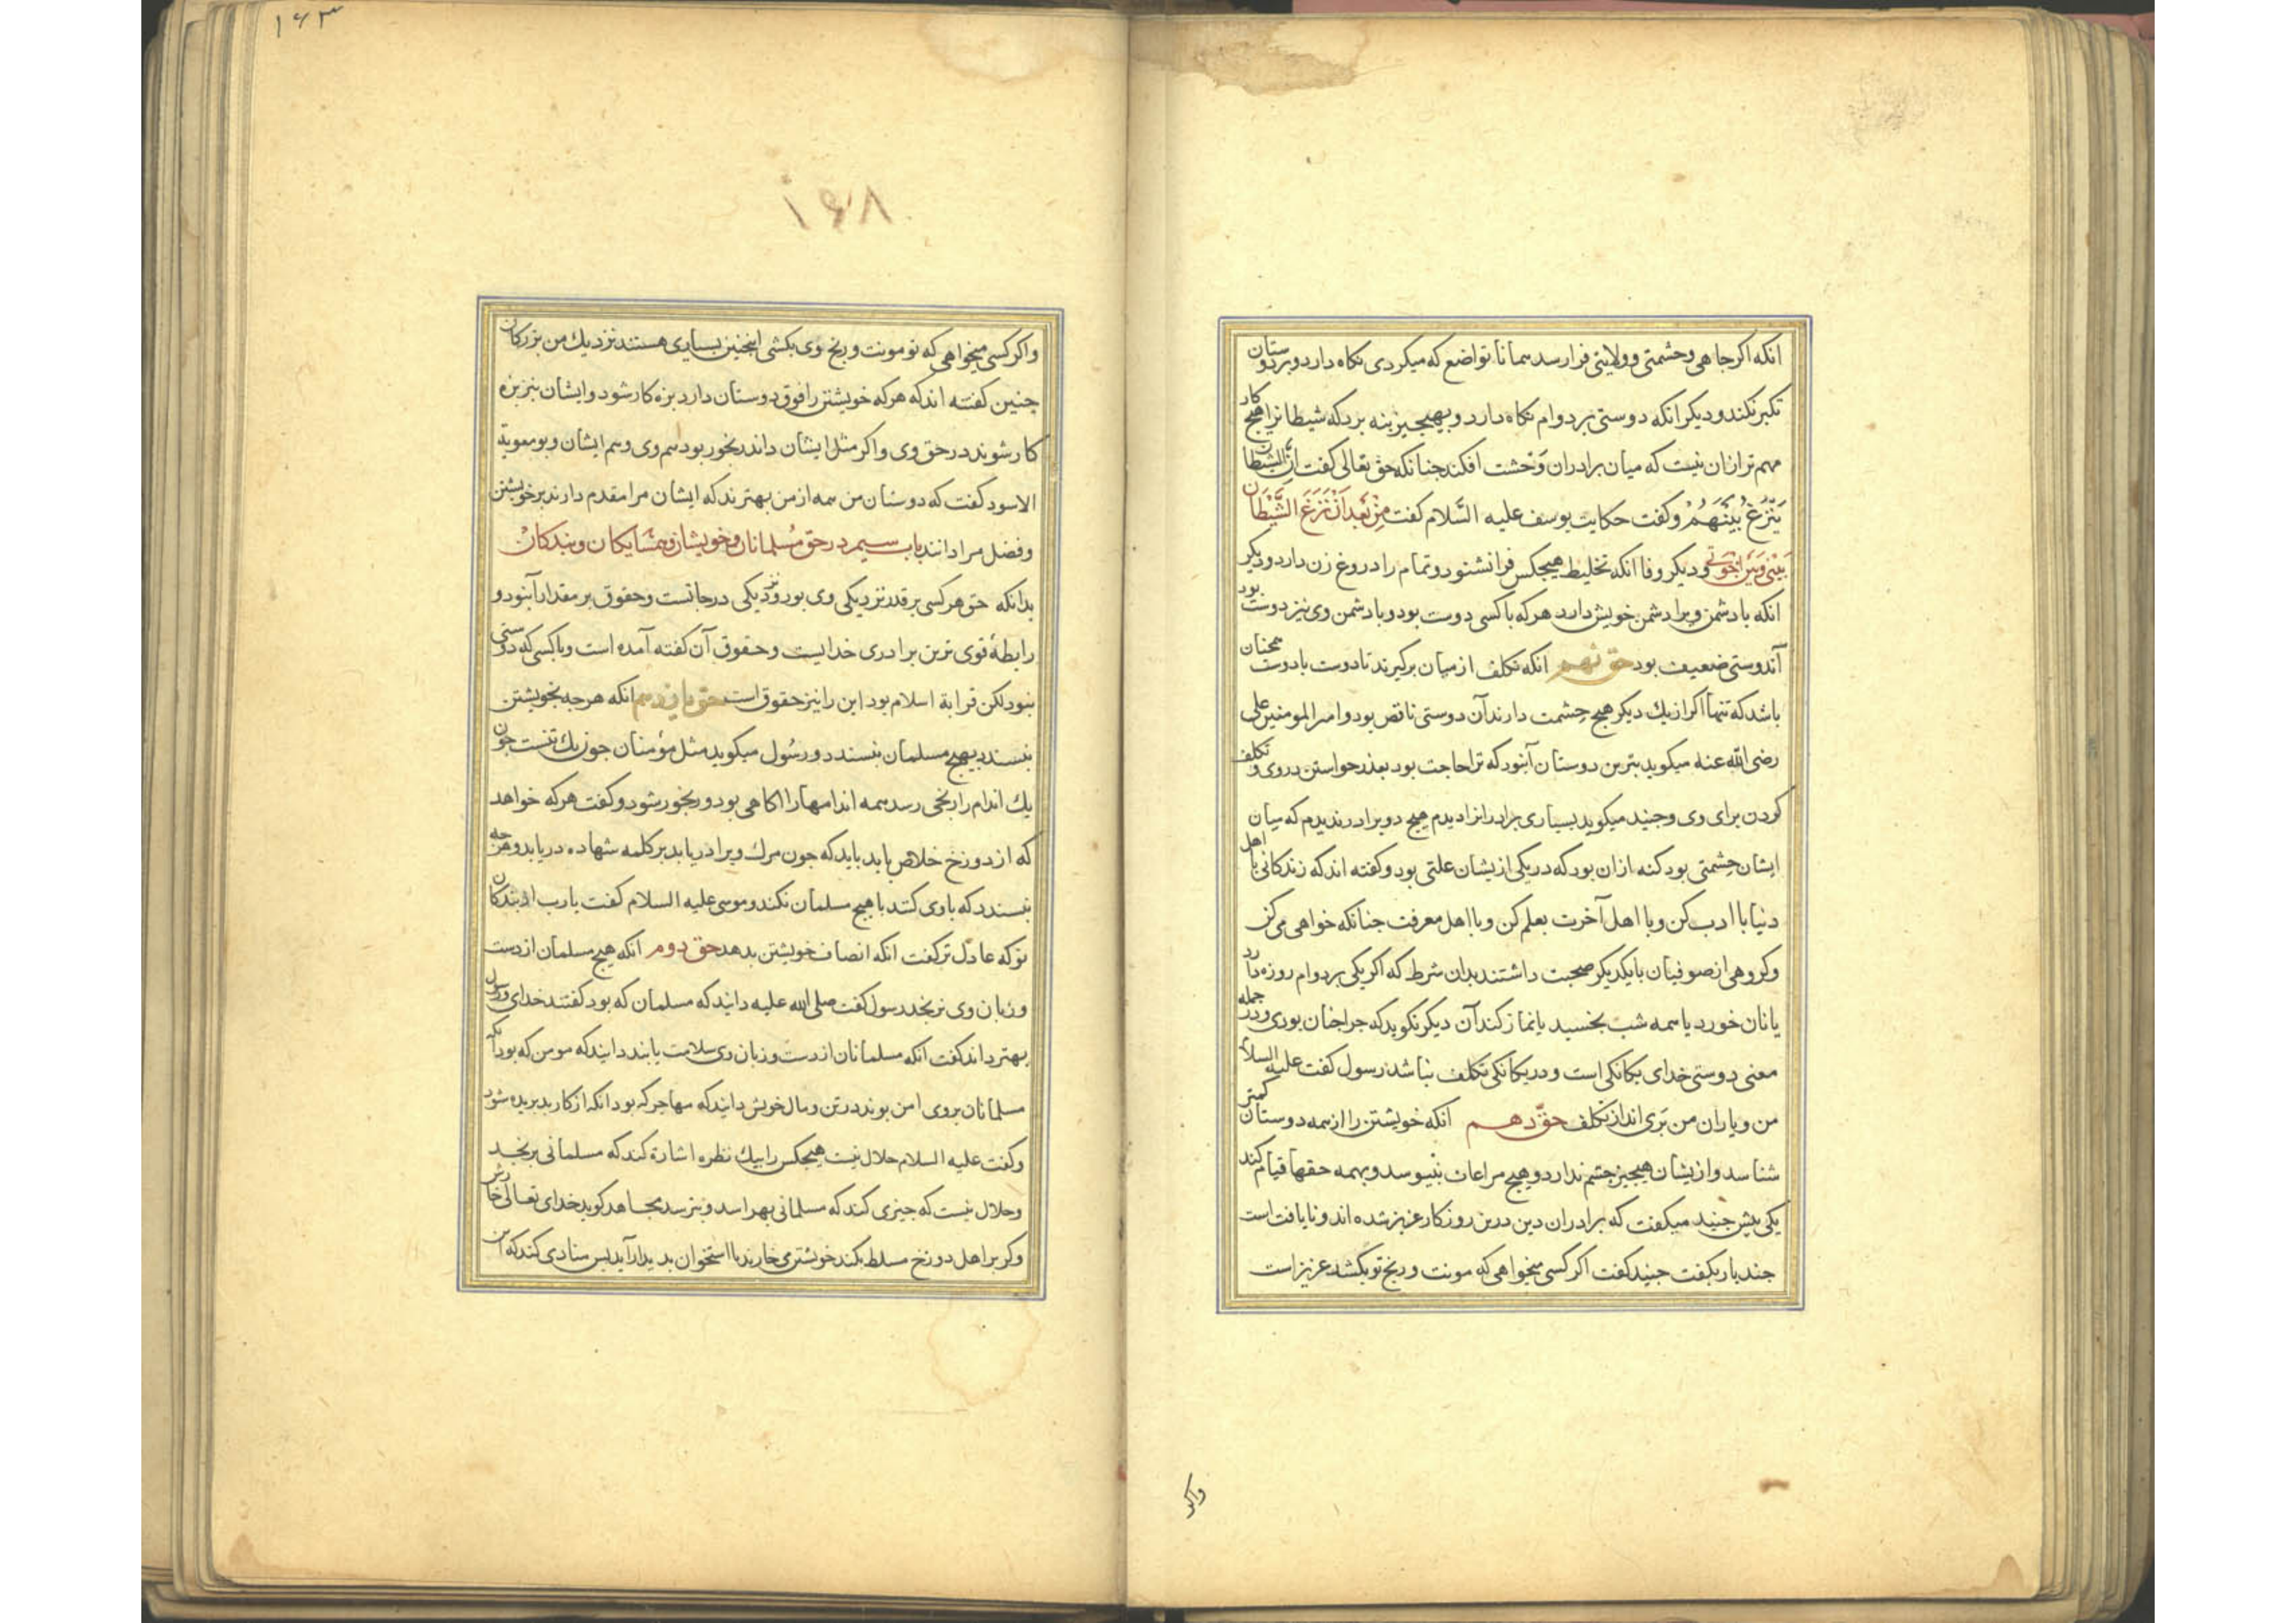 انکه اکر جاهی و حشمتی و ولایتی فرا رسد همانا تواضع که میکردی نکاه دارد و بر دوستان
تکبر نکند و دیکر انکه دوستی بر دوام نکاه دارد و بهیچ چیز بنه برد که شیطانرا هیچ کار
مهم تر ازان نیست که میان برادران وَحشت افکند جنانکه حق تعالی کفت اِنَّ الشیطان
یَنْزَغُ بَیْنَهُمْ و کفت حکایت یوسف علیه السَّلام کفت مِنْ بَعْدِ اَنْ نَزَغَ الشَّیْطَان
بَیْنی وَبَیْنَ اِخْوَتی و دیکر وفا انکه تخلیط هیچکس فرا نشنود و نمام را دروغ زن دارد و دیکر
انکه با دشمن ویرا دشمن خویش دارد هر که با کسی دوست بود و با دشمن وی نیز دوست بود
آن دوستی ضعیف بود حق نهم انکه تکلف از میان برکیرند تا دوست با دوست همجنان
باشد که تنها اکر از یك دیکر هیچ حِشمت دارند آن دوستی ناقص بود و امیر المومنین علی
رضی الله عنه میکوید بترین دوستان آنبود که ترا حاجت بود بعذر خواستن در وی و تکلف
کردن برای وی و جنید میکوید بسیاری برادرانرا دیدم هیچ دو برادر ندیدم که میان
ایشان حِشمتی بود که نه ازان بود که در یکی ازیشان علتی بود و کفته اند که زندکانی با اهل
دنیا با ادب کن و با اهل آخرت بعلم کن و با اهل معرفت جنانکه خواهی می کن
وکروهی از صوفیان با یکدیکر صحبت داشتند بدان شرط که اکر یکی بر دوام روزه دارد
یا نان خورد یا همه شب بخسبد یا نماز کند آن دیکر نکوید که جرا جنان بودی و در جمله
معنی دوستی خدای یکانکی است و در یکانکی تکلف نباشد رسول کفت علیه السلام
من و یاران من بَری اند از تکلف حقّ دهم انکه خویشتن را از همه دوستان کمتر
شناسد و ازیشان هیچیز جشم ندارد و هیچ مراعات بنیوسد و بهمه حقها قیام کند
یکی پیش جنید میکفت که برادران دین درین روزکار عزیز شده اند و نایافت است
جند بار بکفت جنید کفت اکر کسی میخواهی که مونت و رنج تو بکشد عزیز است
واکر
۱۶۳
۱۶۸
و اکر کسی میخواهی که تو مونت و رنج وی بکشی اینجنین بسیاری هستند نزدیك من بزرکان
جنین کفته اند که هر که خویشتن را فوق دوستان دارد بزه کار شود و ایشان نیز بزه
کار شوند در حق وی و اکر مثل ایشان داند رنجور بود هم وی و هم ایشان و بو معویة
الاسود کفت که دوستان من همه از من بهترند که ایشان مرا مقدم دارند بر خویشتن
و فضل مرا دانند باب سیم در حق مُسلمانان و خویشان و همسَایکان و بندکان
بدانکه حق هر کسی بر قدر نزدیکی وی بود و نزدیکی درجاتست و حقوق بر مقدار آنبود و
رابطهٔ قوی ترین برادری خدایست و حقوق آن کفته آمده است و با کسی که دوستی
نبود لکن قرابة اسلام بود این را نیز حقوق است انکه هرجه بخویشتن
نبسندد بهیچ مسلمان نبسندد و رسُول میکوید مثل مؤمنان جون یك تنست جون
یك اندام را رنجی رسد همه اندامها را اکاهی بود و رنجور شود و کفت هر که خواهد
که از دوزخ خلاص یابد باید که جون مرك ویرا دریابد بر کلمه شهاده دریابد و هرجه
نبسندد که با وی کنند با هیچ مسلمان نکند و موسی علیه السلام کفت یا رب از بندکان
تو که عادل تر کفت انکه انصاف خویشتن بدهد حق دوم انکه هیچ مسلمان از دست
و زبان وی نرنجد رسول کفت صلی الله علیه دانید که مسلمان که بود کفتند خدای و رسول
بهتر داند کفت انکه مسلمانان از دست و زبان وی سلامت یابند دانید که مومن که بود آنکه
مسلمانان بروی امن بوند در تن و مال خویش دانید که مهاجر که بود انکه از کار بد بریده شود
و کفت علیه السلام حلال نیست هیچکس را بیك نظره اشارة کند که مسلمانی برنجد
و حلال نیست که جیزی کند که مسلمانی بهراسد و بترسد مجاهد کوید خدای تعالی خارش
و کر بر اهل دوزخ مسلط بکند خویشتن می خارند تا استخوان بدیدار آید بس منادی کند که این